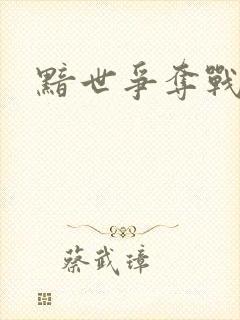 黯世爭奪戰
蔡武璋